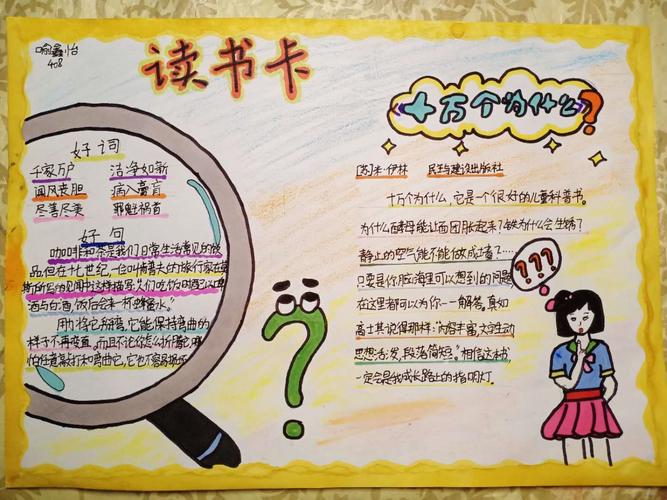 喻鑫怡
408
读书卡
好词
千家万户 洁净如新
闻风丧胆 病入膏肓
尽善尽美 罪魁祸首
好句
咖啡和茶是我们日常生活常见的饮
品但在十七世纪,一位叫
的旅行家在
的见闻中这样描写:人们吃饭时酒以
酒与白酒,饭后会来一杯蜂蜜水。"
用力将它掰弯,它能保持弯曲的
样子不再变直。而且不论你怎么折腾它,哪
怕任意敲打和弯曲它,它也不容易
《十万个为什么?
[苏]米·伊林 民主与建设出版社
十万个为什么,它是一个很好的儿童科普书。
为什么酵母能让面团胀起来?铁为什么会生锈?
静止的空气能不能做成墙?....
只要是你脑海里可以想到的问题
在这里都可以为你一一解答。真如
高士其说得那样:"内容丰富,文字生动
思想活泼,段落简短。"相信这本书
一定会是我成长路上的指明灯。
???